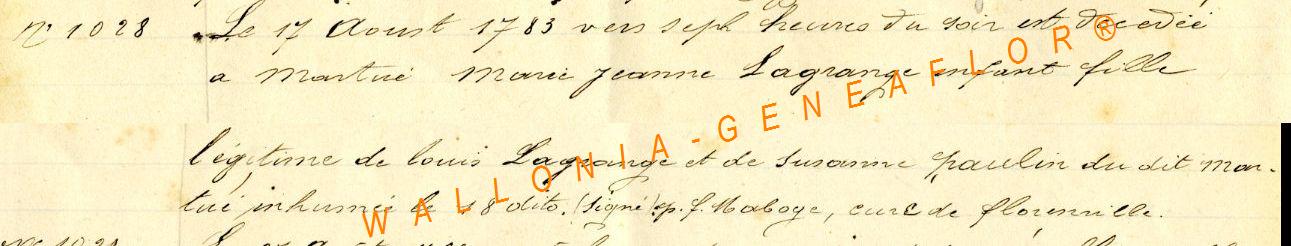 n° 1028 Le 17 Aoust 1783 vers sept heures du soir est décédée
a Martué Marie jeanne Lagrange enfant fille
légitime de louis Lagrange et de susanne paulin du dit Mar-
tué, inhumée le 18 dito. (signé) p. f. Maboge, curé de florenville.
WALLONIA-GENEAFLOR®